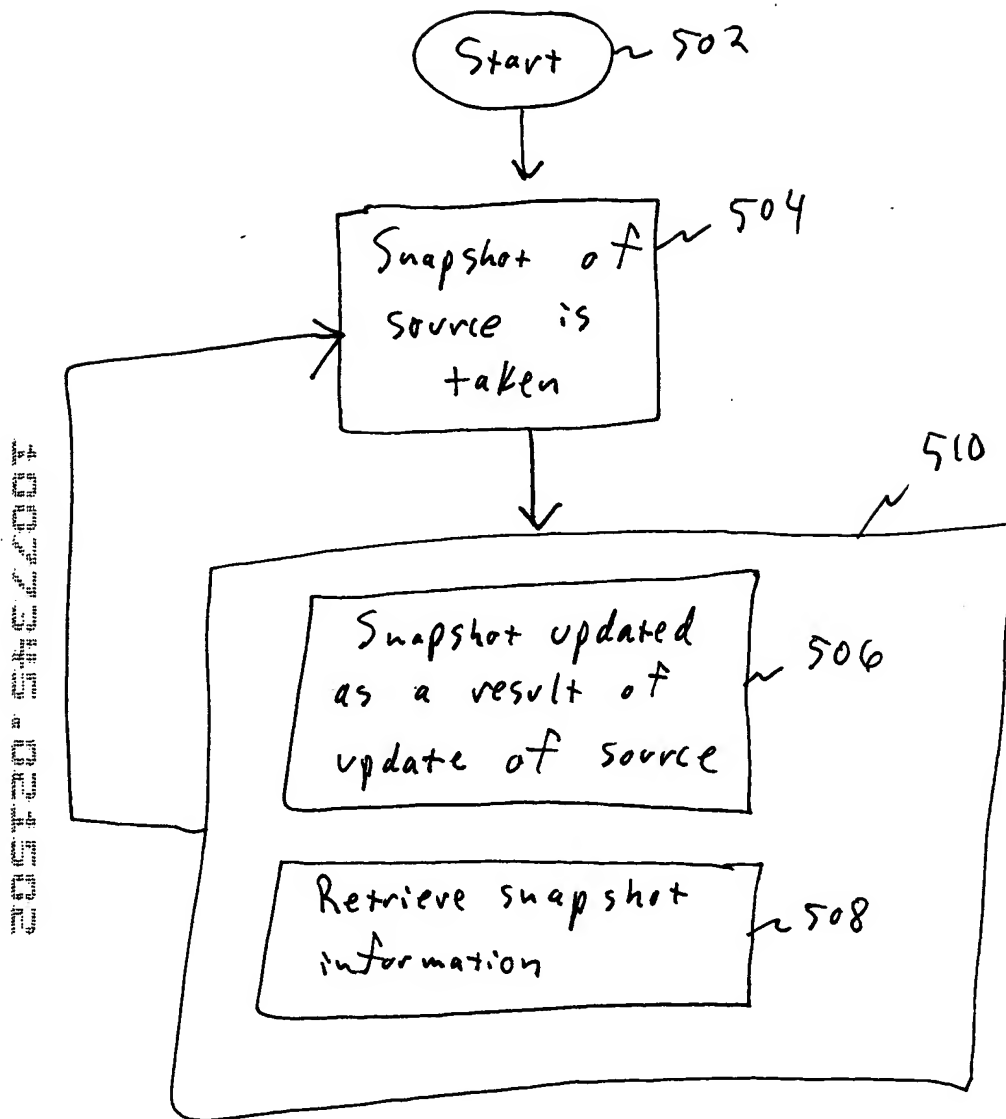 Start 502
Snapshot of 504
source is
taken
510
Snapshot updated
as a result of 506
update of source
Retrieve snapshot 508
information
10077345.021502